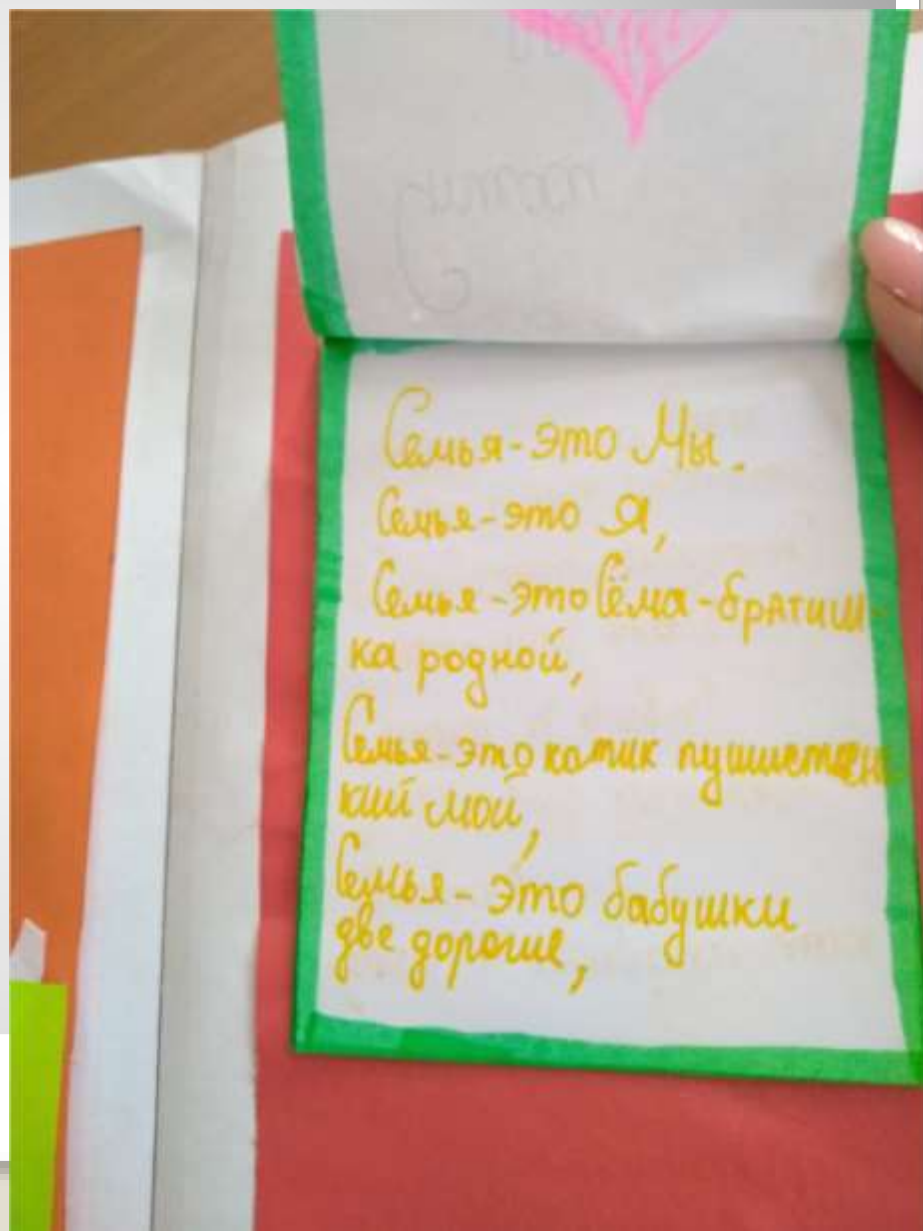 Семья-это Мы.
Семья-это Я,
Семья-это Сёма-братиш-
ка родной,
Семья-это котик пушистень
кий мой,
Семья-это бабушки
две дорогие,